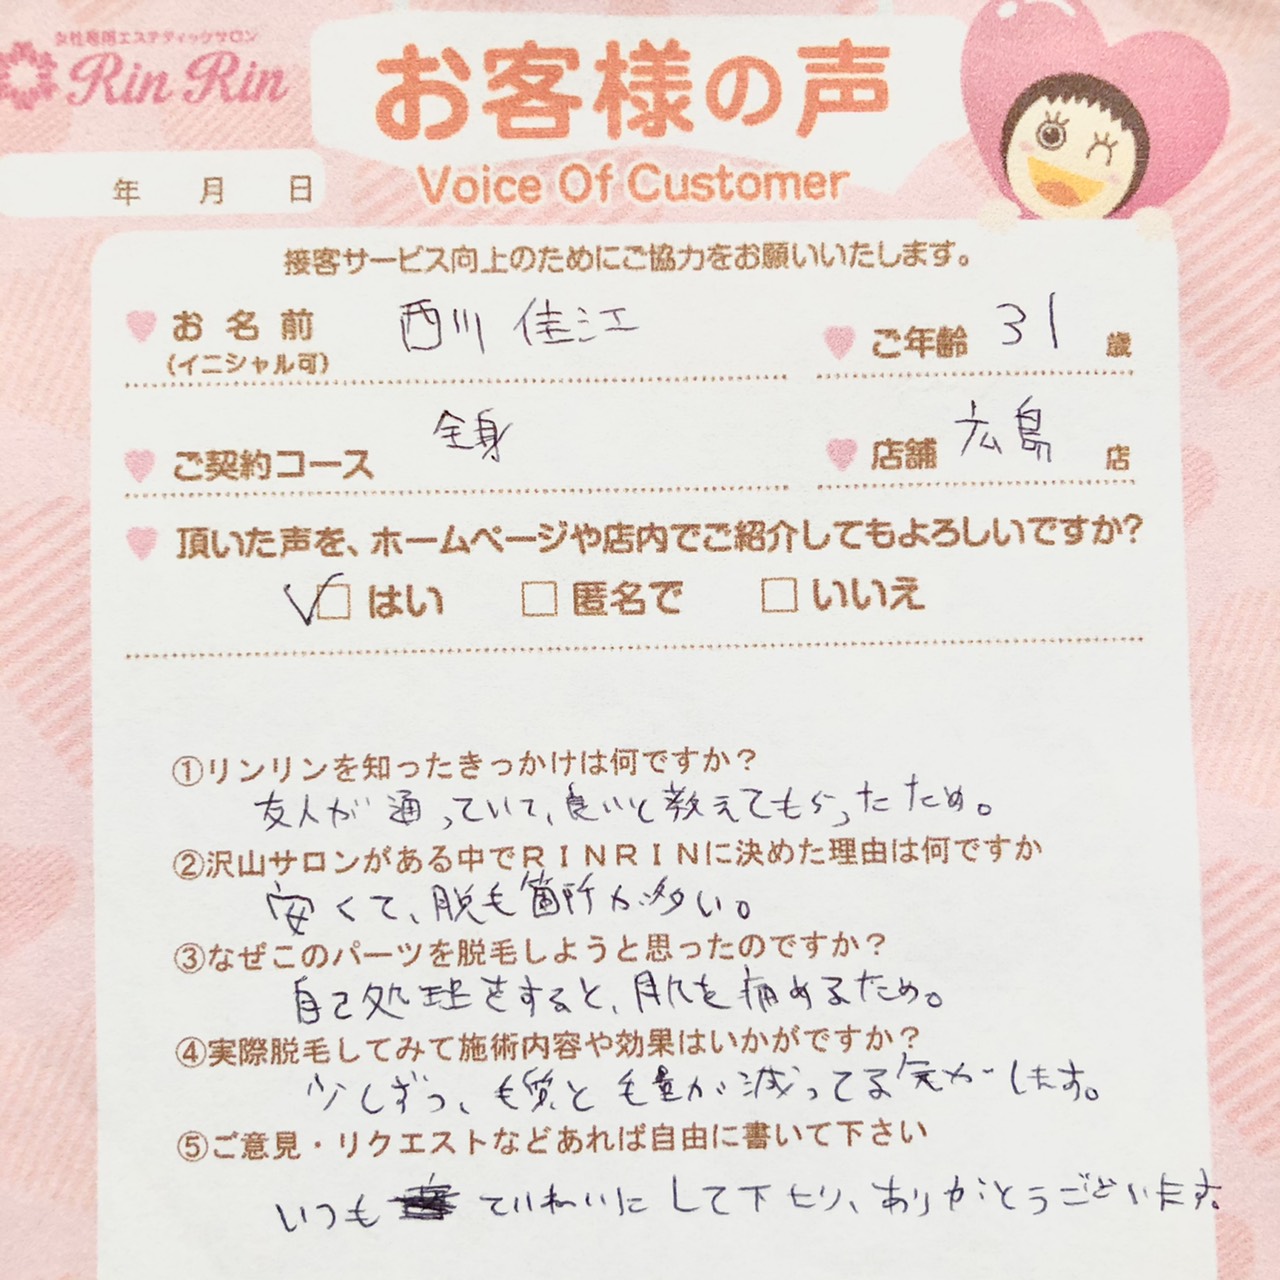 女性専用エステティックサロン
Rin Rin
お客様の声
Voice Of Customer
年 月 日
接客サービス向上のためにご協力をお願いいたします。
お名前 西川 佳江 ご年齢 31 歳
(イニシャル可)
ご契約コース 全身 店舗 広島 店
頂いた声を、ホームページや店内でご紹介してもよろしいですか?
✓□はい □匿名で □いいえ
①リンリンを知ったきっかけは何ですか?
友人が通っていて、良いと教えてもらったため。
②沢山サロンがある中でRINRINに決めた理由は何ですか
安くて、脱毛箇所が多い。
③なぜこのパーツを脱毛しようと思ったのですか?
自己処理をすると、肌を痛めるため。
④実際脱毛してみて施術内容や効果はいかがですか?
少しずつ、毛質と毛量が減ってる気がします。
⑤ご意見・リクエストなどあれば自由に書いて下さい
いつも ていねいにして下さり、ありがとうございます。